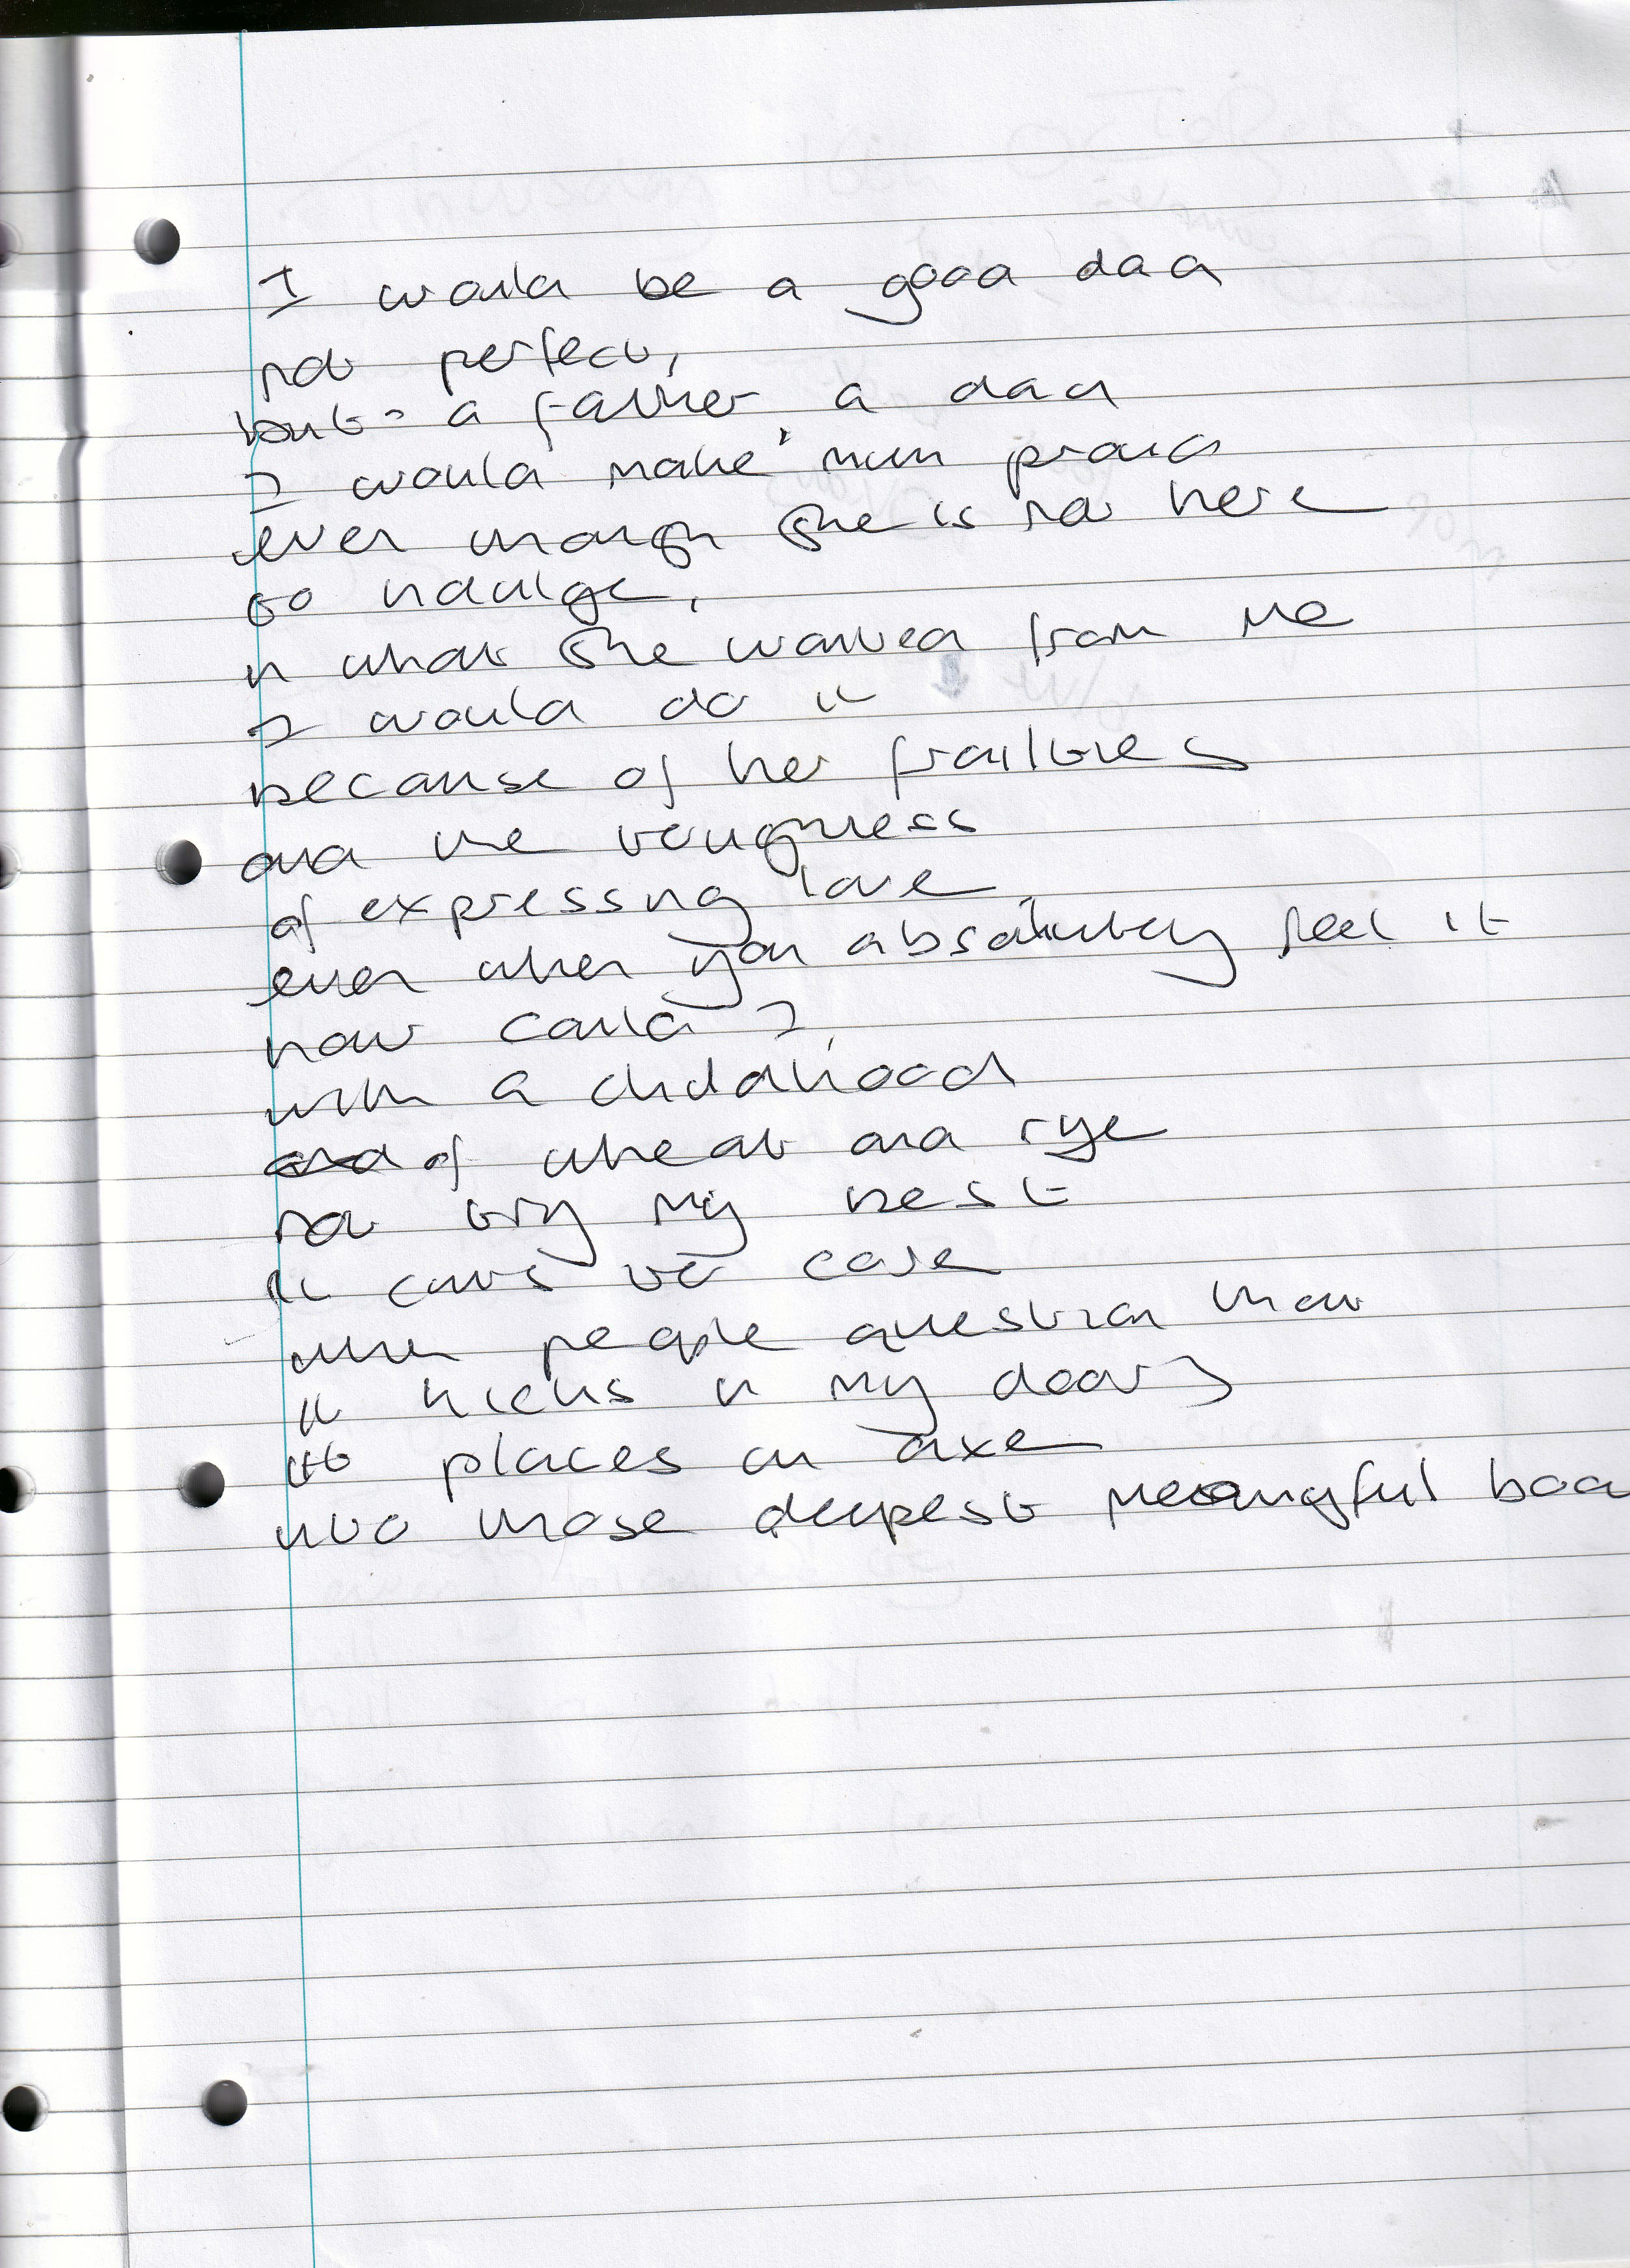 I would be a good dad
not perfect,
but a father a dad
I would make mum proud
even though she is not here
to indulge,
in what she wanted from me
I would do it
because of her frailties
and the toughness
of expressing love
even when you absolutely feel it
how could I,
with a childhood
and of wheat and rye
not try my best
it cuts to core
when people question that
it kicks in my doors
it places an axe
into those deepest meaningful